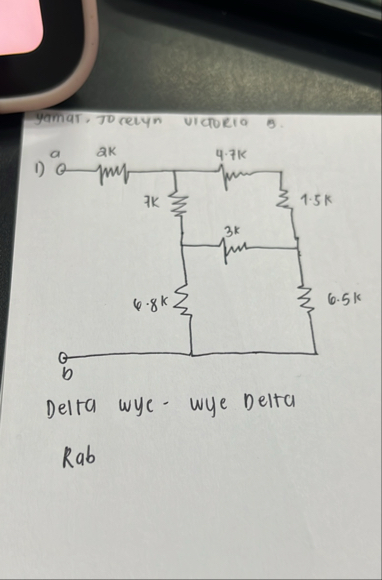 yamar, Jocelyn Victoria S.
a 2K 4.7K
1)
7K 1.5K
3K
6.8K 6.5K
b
Delta wye - wye Delta
Rab